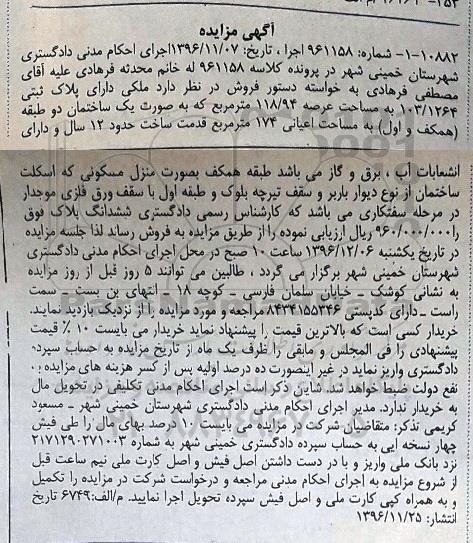 آگهی مزایده
۱۰۸۸۲-۱- شماره: ۹۶۱۱۵۸ اجرا ، تاریخ: ۱۳۹۶/۱۱/۰۷اجرای احکام مدنی دادگستری
شهرستان خمینی شهر در پرونده کلاسه ۹۶۱۱۵۸ له خانم محدثه فرهادی علیه آقای
مصطفی فرهادی به خواسته دستور فروش در نظر دارد ملکی دارای پلاک ثبتی
۱۰۳/۱۲۶۴ به مساحت عرصه ۱۱۸/۹۴ مترمربع که به صورت یک ساختمان دو طبقه
(همکف و اول) به مساحت اعیانی ۱۷۴ مترمربع قدمت ساخت حدود ۱۲ سال و دارای
انشعابات آب ، برق و گاز می باشد طبقه همکف بصورت منزل مسکونی که اسکلت
ساختمان از نوع دیوار باربر و سقف تیرچه بلوک و طبقه اول با سقف ورق فلزی موجدار
در مرحله سفتکاری می باشد که کارشناس رسمی دادگستری ششدانگ پلاک فوق
را ۹۶۰/۰۰۰/۰۰۰ ریال ارزیابی نموده را از طریق مزایده به فروش رساند لذا جلسه مزایده
در تاریخ یکشنبه ۱۳۹۶/۱۲/۰۶ ساعت ۱۰ صبح در محل اجرای احکام مدنی دادگستری
شهرستان خمینی شهر برگزار می گردد ، طالبین می توانند ۵ روز قبل از روز مزایده
به نشانی کوشک ـ خیابان سلمان فارسی ـ کوچه ۱۸ ـ انتهای بن بست ـ سمت
راست ـ دارای کدپستی ۸۴۳۴۱۵۵۳۴۶ مراجعه و مورد مزایده را از نزدیک بازدید نمایند.
خریدار کسی است که بالاترین قیمت را پیشنهاد نماید خریدار می بایست ۱۰ ٪ قیمت
پیشنهادی را فی المجلس و مابقی را ظرف یک ماه از تاریخ مزایده به حساب سپرده
دادگستری واریز نماید در غیر اینصورت ده درصد اولیه پس از کسر هزینه های مزایده به
نفع دولت ضبط خواهد شد. شایان ذکر است اجرای احکام مدنی تکلیفی در تحویل مال
به خریدار ندارد. مدیر اجرای احکام مدنی دادگستری شهرستان خمینی شهر ـ مسعود
کریمی تذکر: متقاضیان شرکت در مزایده می بایست ۱۰ درصد بهای مال را طی فیش
چهار نسخه ایی به حساب سپرده دادگستری خمینی شهر به شماره ۲۱۷۱۲۹۰۲۷۱۰۰۳
نزد بانک ملی واریز و با در دست داشتن اصل فیش و اصل کارت ملی نیم ساعت قبل
از شروع مزایده به اجرای احکام مدنی مراجعه و درخواست شرکت در مزایده را تکمیل
و به همراه کپی کارت ملی و اصل فیش سپرده تحویل اجرا نمایید. م/الف:۶۷۴۹ تاریخ
انتشار: ۱۳۹۶/۱۱/۲۵